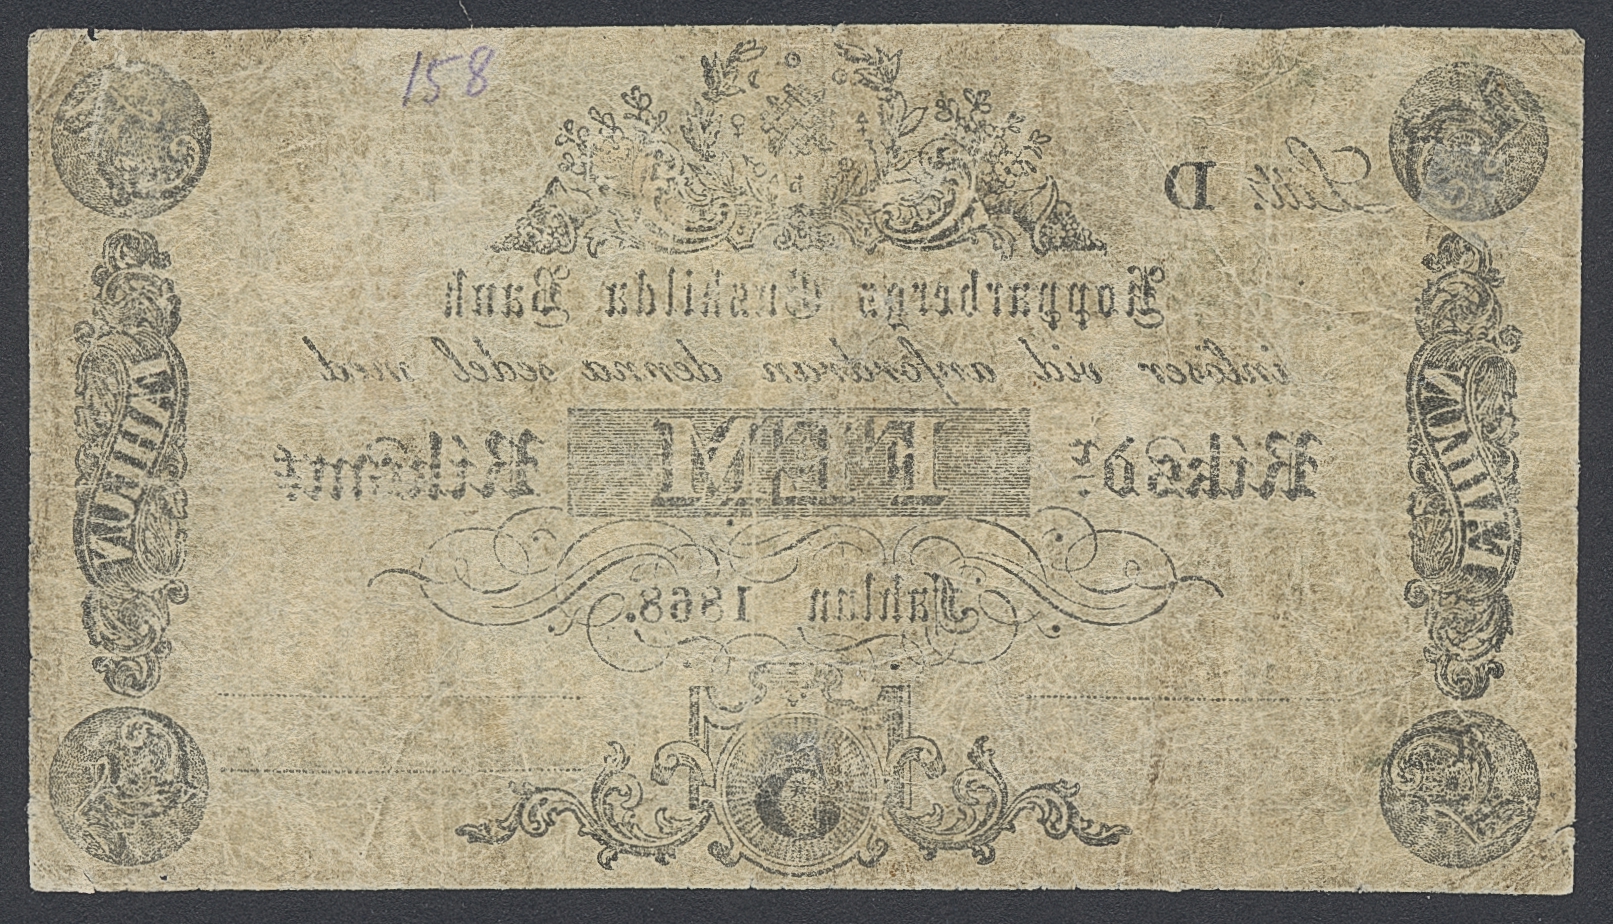 158
Litt. D
Kopparbergs Enskilda Bank
inlöser vid anfordran denna sedel med
Riksdr. FEM Riksmt.
Fahlun 1868.
5